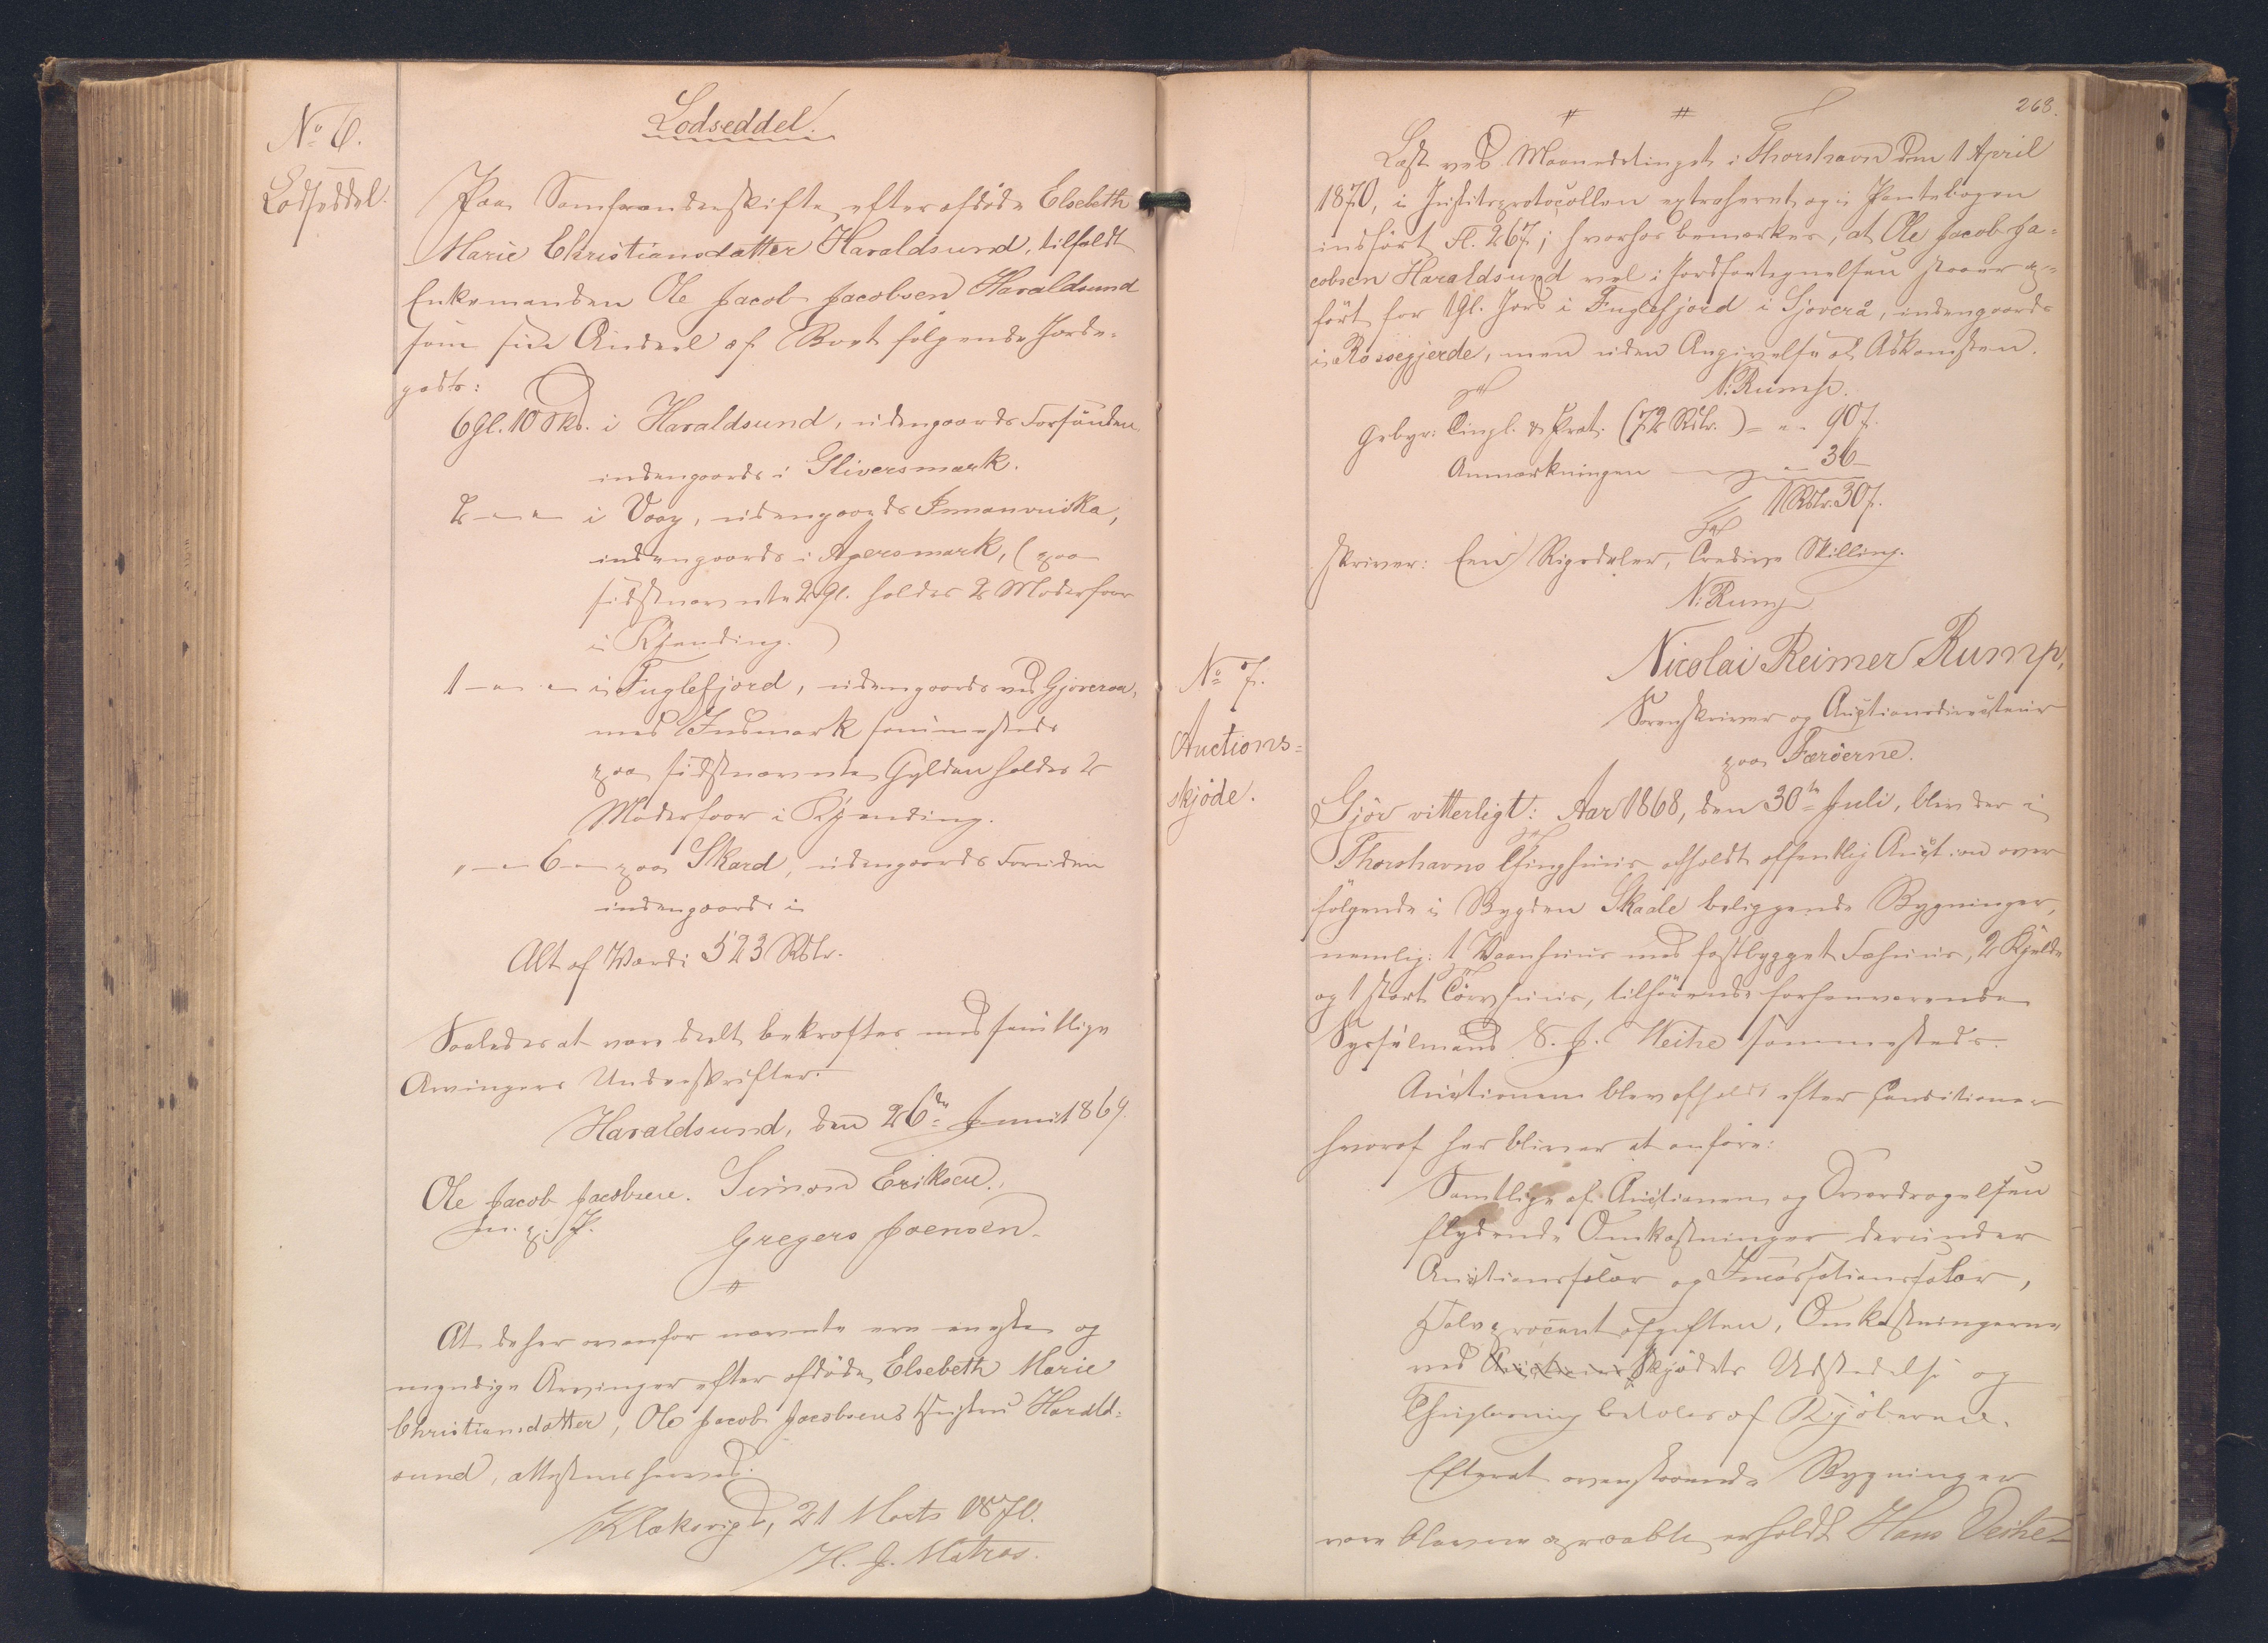 No 6.
Lodseddel.
Lodseddel.
Paa Samfrændeskifte efter afdøde Elsebeth
Marie Christiansdatter Haraldsund, tilfaldt
Enkemanden Ole Jacob Jacobsen Haraldsund
som sin Andeel af Boet følgende Jorde-
gods:
6 Gl. 10 Sk. i Haraldsund, udengaards Forsunden
indengaards i Gliversmark.
2 — " — i Vaag, udengaards Innanvuika,
indengaards i Agersmark, (paa
sidstnævnte 2 Gl. holdes 2 Moderfaar
i Kjending.)
1 — " — i Fuglefjord, udengaards ved Gjoveraa,
med Indmark sammesteds
paa sidstnævnte Gylden holdes 2
Moderfaar i Kjending.
" — 6 — paa Skard, udengaards Foruden
indengaards i
Alt af Værdi 523 Rdlr.
Saaledes at være deelt bekræftes med samtlige
Arvingers Underskrifter.
Haraldsund, den 26de Juni 1869.
Ole Jacob Jacobsen. Simon Eriksen.
m. p. P.
Gregers Joensen.
#
At de her ovenfor nævnte ere eneste og
myndige Arvinger efter afdøde Elsebeth Marie
Christiansdatter, Ole Jacob Jacobsens Hustru Harald-
sund, attesteres herved.
Klaksvig, 21 Marts 1870.
H. J. Matras.
268.
# #
Læst ved Maanedstinget i Thorshavn den 1 April
1870, i Justitsprotocollen extraheret og i Pantebogen
indført Fl. 267; hvorhos bemærkes, at Ole Jacob Ja-
cobsen Haraldsund vel i Jordfortegnelsen staaer op-
ført for 1 Gl. Jord i Fuglefjord i Gjoverå, indengaards
i Rossegjerde, men uden Angivelse af Adkomsten.
N: Rump.
Gebyr: Tingl. & Prot. (72 Rdlr.) = " - 90 ß.
Anmærkningen — " — 36 —
1 Rdlr. 30 ß.
skriver: Een Rigsdaler, Tredive Skilling.
N: Rump
No 7.
Auctions-
skjøde.
Nicolai Reimer Rump,
Sorenskriver og Auctionsdirecteur
paa Færöerne.
Gjör vitterligt: Aar 1868, den 30te Juli, blev der i
Thorshavns Thinghuus afholdt offentlig Auction over
følgende i Bygden Skaale beliggende Bygninger,
nemlig: 1 Vaanhuus med fastbygget Fæhuus, 2 Kjelde
og 1 stort Tørvhuus, tilhørende forhenværende
Sysselmand S. J. Weihe sammesteds.
Auctionen blev afholdt efter Conditioner
hvoraf her bliver at anføre:
Samtlige af Auctionen og Overdragelsen
flydende Omkostninger derunder
Auctionssalær og Incassationssalær,
Halvprocentafgiften, Omkostningerne
ved Auctions Skjødets Udstedelse og
Thinglæsning betales af Kjøberne.
Efterat ovenstaaende Bygninger
vare blevne opraabte erholdt Hans Weihe